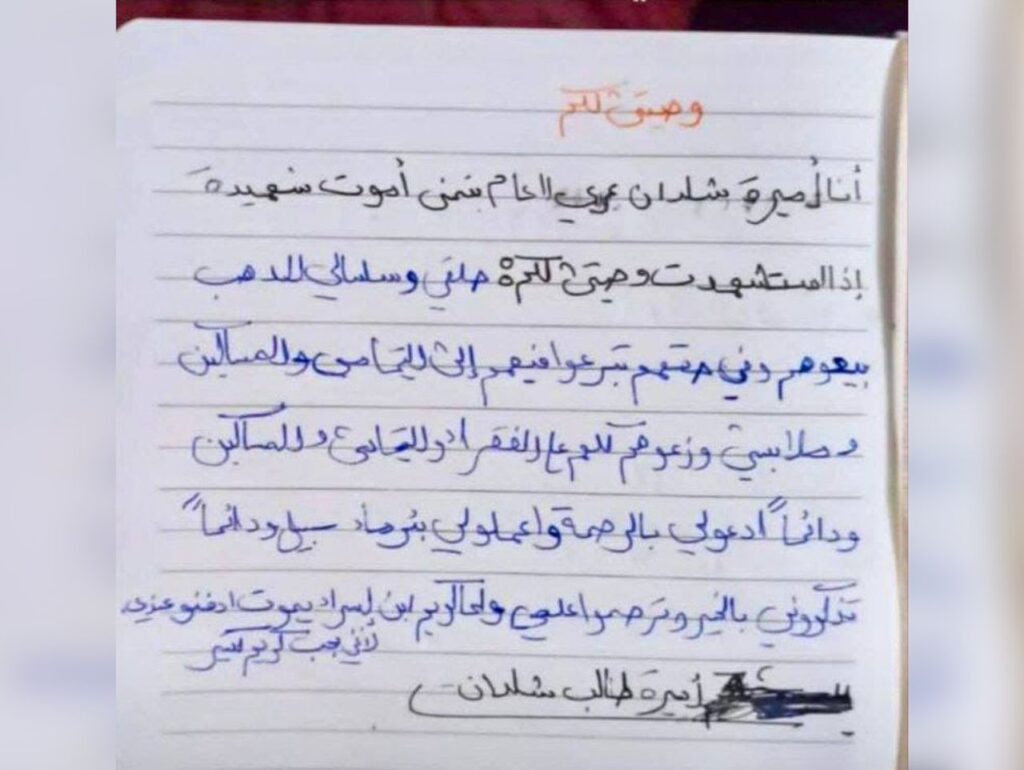 وصيتي لكم
أنا أميرة شلدان عمري العام بتمنى أموت شهيدة
إذا استشهدت وصيتي لكم حلقي وسلسالي الدهب
بيعوهم وفي حقهم تبرعوا فيهم إلى اليتامى والمساكين
وملابسي وزعوهم كلهم على الفقراء واليتامى والمساكين
ودائماً ادعولي بالرحمة واعملولي بئر ماء سبيل ودائماً
تذكروني بالخير وترحموا علي ولما كريم ابن إسراء يموت ادفنو عندي
لأني بحب كريم كتير
أميرة طالب شلدان